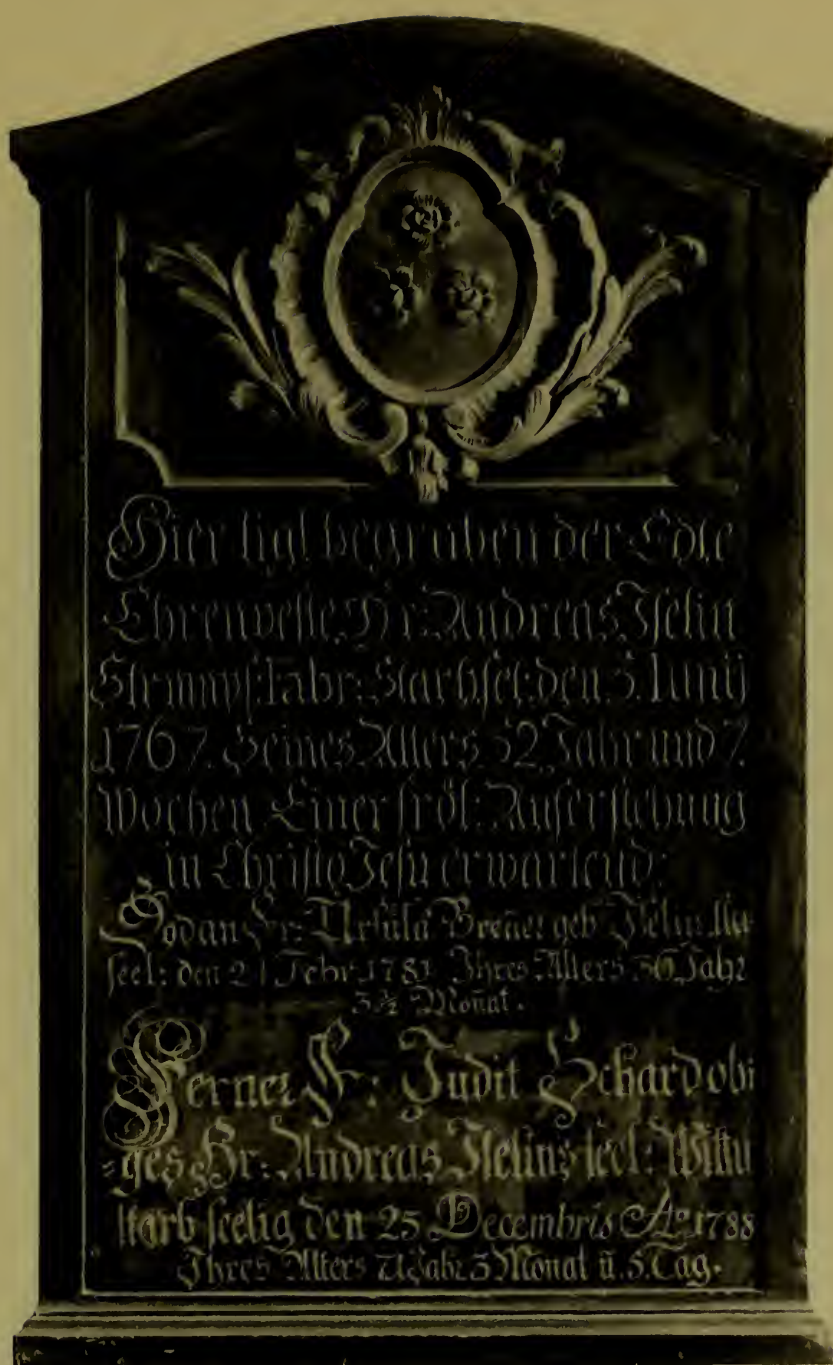 Hier ligt begraben der Edle
Ehrenveste Hr: Andreas Iselin
Strumpf: Fabr: Starb sel: den 3. Iunij
1767. Seines Alters 52 Jahr und 7.
Wochen Einer fröl: Auferstehung
in Christo Jesu erwartend:
Sodan Fr: Ursula Breñer geb Iselin
seel: den 21 Febr 1781 Ihres Alters 36 Jahr
3½ Moñat.
Ferner F: Judit Eckard obi
=ges Hr: Andreas Iselins seel: Wittu
starb seelig den 25 Decembris Aº 1788
Ihres Alters Jahr 3 Monat ū. 5. Tag.